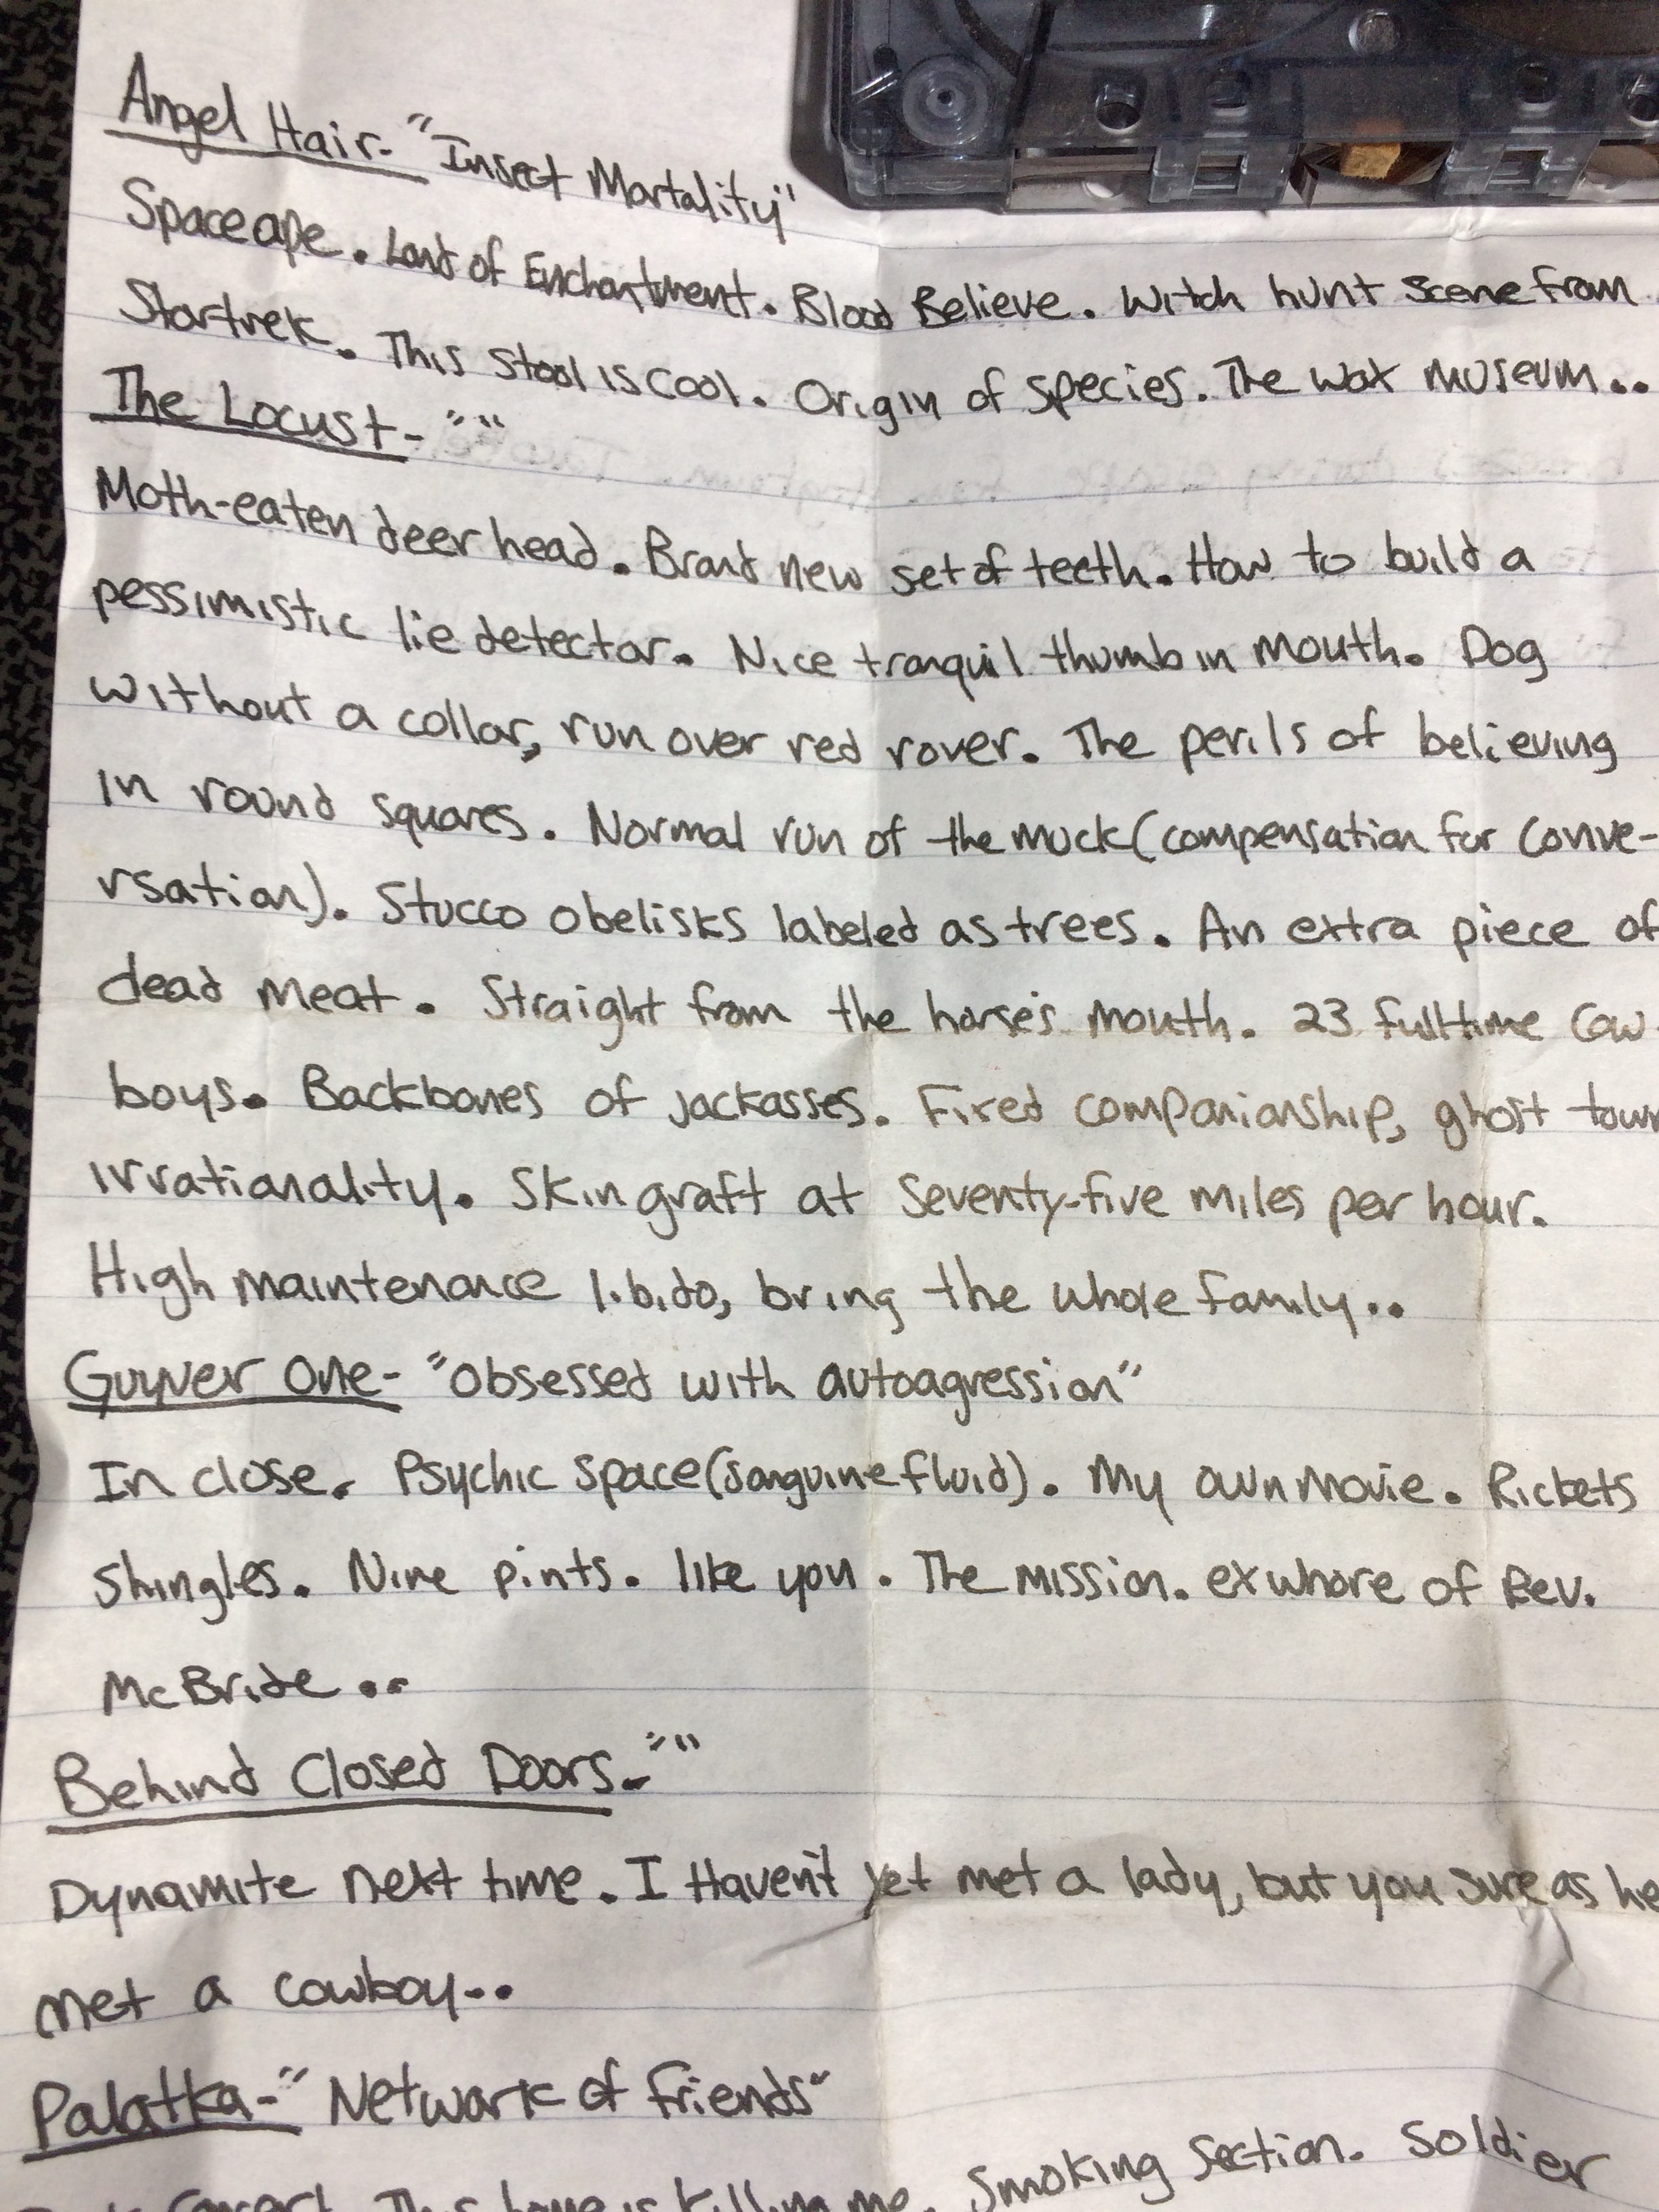 Angel Hair- "Insect Mortality"
Spaceape. Land of Enchantment. Blood Believe. Witch hunt scene from
Startrek. This Stool is Cool. Origin of species. The wax museum..
The Locust- ""
Moth-eaten deer head. Brand new set of teeth. How to build a
pessimistic lie detector. Nice tranquil thumb in mouth. Dog
without a collar, run over red rover. The perils of believing
in round squares. Normal run of the muck (compensation for conve-
rsation). Stucco obelisks labeled as trees. An extra piece of
dead meat. Straight from the horse's mouth. 23 fulltime cow-
boys. Backbones of jackasses. Fixed companionship, ghost town
irrationality. Skin graft at seventy-five miles per hour.
High maintenance libido, bring the whole family..
Guyver One- "obsessed with autoagression"
In close. Psychic space (sanguine fluid). My own movie. Rickets
shingles. Nine pints. like you. The mission. exwhore of Rev.
McBride..
Behind Closed Doors- ""
Dynamite next time. I Haven't yet met a lady, but you sure as he
met a cowboy..
Palatka- "Network of friends"
is killing me. Smoking Section. Soldier